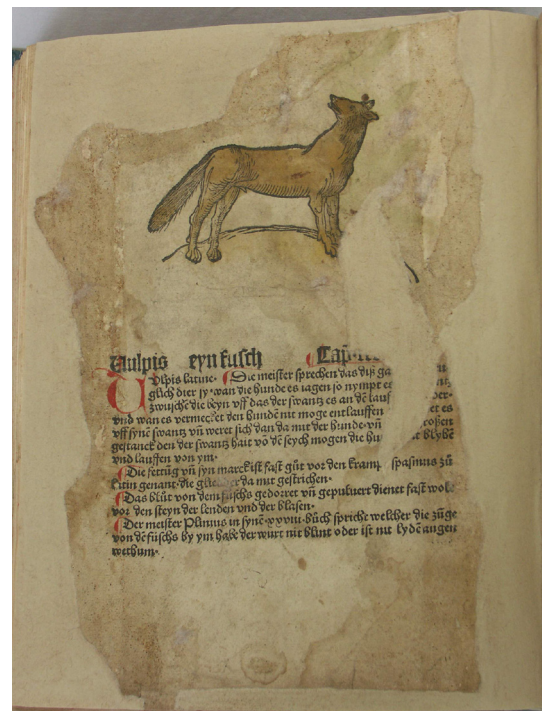 Uulpis eyn fusch Capi
Ulpis latine· Die meister sprechen das diß ga
glich dier sy· wan die hunde es iagen so nympt e
zwusche die beyn vff das der swantz es an dē lauf der·
vnd wan es vermecket den hundē nit moge entlauffen et es
vff synē swantz vñ weret sich dan da mit der hunde· vñ roßen
gestanck den der swantz hait vō dē seych mogen die hu t blybē
vnd lauffen von ym·
Die fettūg vñ syn marck ist fast gūt vor den kramp spasmus zū
latin genant· die glieder da mit gestrichen·
Das blūt von dem fuschs gedorret vñ gepuluert dienet fast wol
vor den steyn der lenden vnd der blasen·
Der meister Plinius in synē·xxviij·būch spricht welcher die zūge
von dē fuschs by ym habe der wurt nit blint oder ist nit lydē angen
wethum·